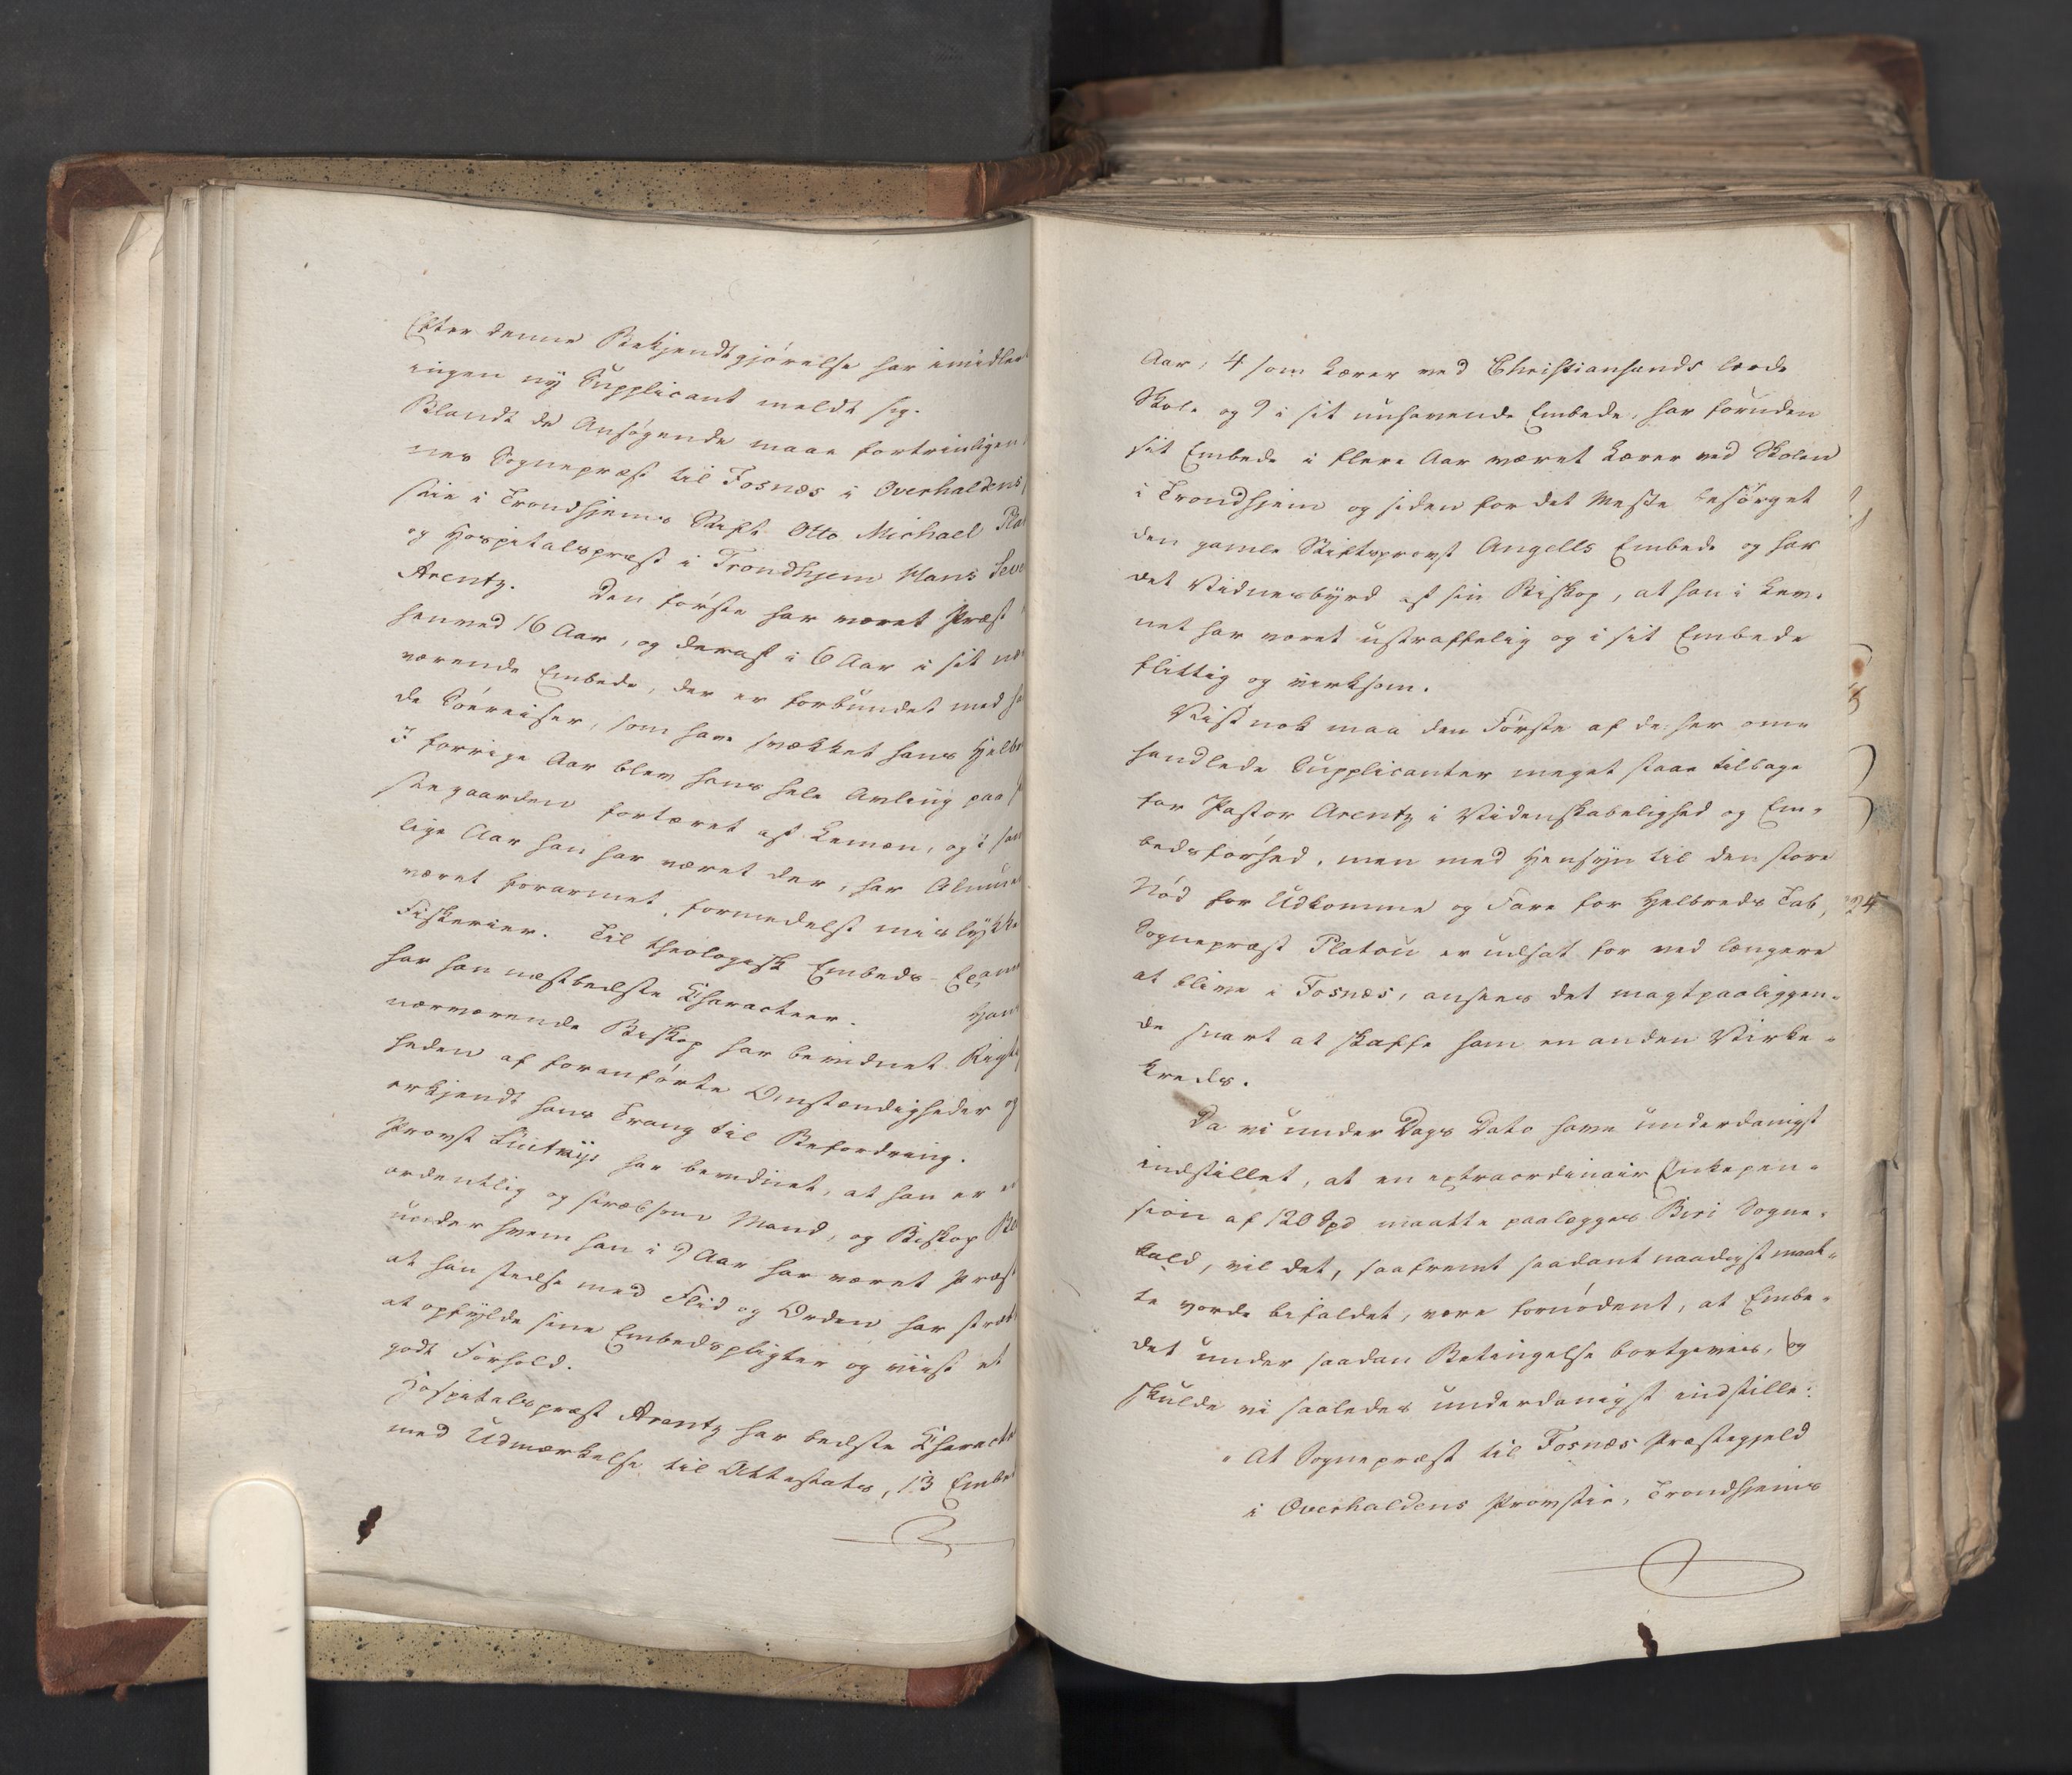 Efter denne Bekjendtgjørelse har imidler
ingen ny Supplicant meldt sig.
Blandt de Ansøgende maae fortrinligen
nes Sognepræst til Fosnæs i Overhaldens
stie i Trondhjems Stift Otto Michael Pla
og Hospitalspræst i Trondhjem Hans Seve
Arentz. Den første har været Præst
henved 16 Aar, og deraf i 6 Aar i sit næ
værende Embede, der er forbundet med
de Søereiser, som have svækket hans Helbr
I forrige Aar blev hans hele Avling paa
stegaarden fortæret af Lemæn, og i sam
lige Aar han har været der, har Almue
været forarmet, formedelst mislykke
Fiskerier. Til theologisk Embeds-Exam
har han næstbedste Characteer. Han
nærværende Biskop har bevidnet Rigt
heden af foranførte Omstændigheder og
erkjendt hans Trang til Befordring.
Provst har bevidnet, at han er
ordentlig og stræbsom Mand, og Biskop
under hvem han i 9 Aar har været Præst
at han stedse med Flid og Orden har stræb
at opfylde sine Embedspligter og viist et
godt Forhold.
Hospitalspræst Arentz har bedste Charact
med Udmærkelse til Attestats, 13 Embe
Aar; 4 som Lærer ved Christiansands lærde
Skole og 9 i sit unhavende Embede, har foruden
sit Embede i flere Aar været Lærer ved Skolen
i Trondhjem og siden for det Meste besørget
den gamle Stiftsprovst Angells Embede og har
det Vidnesbyrd af sin Biskop, at han i Lev-
net har været ustraffelig og i sit Embede
flittig og virksom.
Vistnok maa den Første af de her om-
handlede Supplicanter meget staae tilbage
for Pastor Arentz i Videnskabelighed og Em-
bedsførhed, men med Hensyn til den store
Nød for Udkomme og Fare for Helbreds Tab,
Sognepræst Platou er udsat for ved længere
at blive i Fosnæs, ansees det magtpaaliggen-
de snart at skaffe ham en anden Virke-
kreds.
Da vi under Dags Dato have underdanigst
indstillet, at en extraordinair Enkepen-
sion af 120 Spd maatte paalægges Biri Sogne-
kald, vil det, saafremt saadant naadigst maat-
te vorde bifaldet, være fornødent, at Embe-
det under saadan Betingelse bortgives, og
skulde vi saaledes underdanigst indstille:
"At Sognepræst til Fosnæs Præstegjeld
i Overhaldens Provstie, Trondhjems